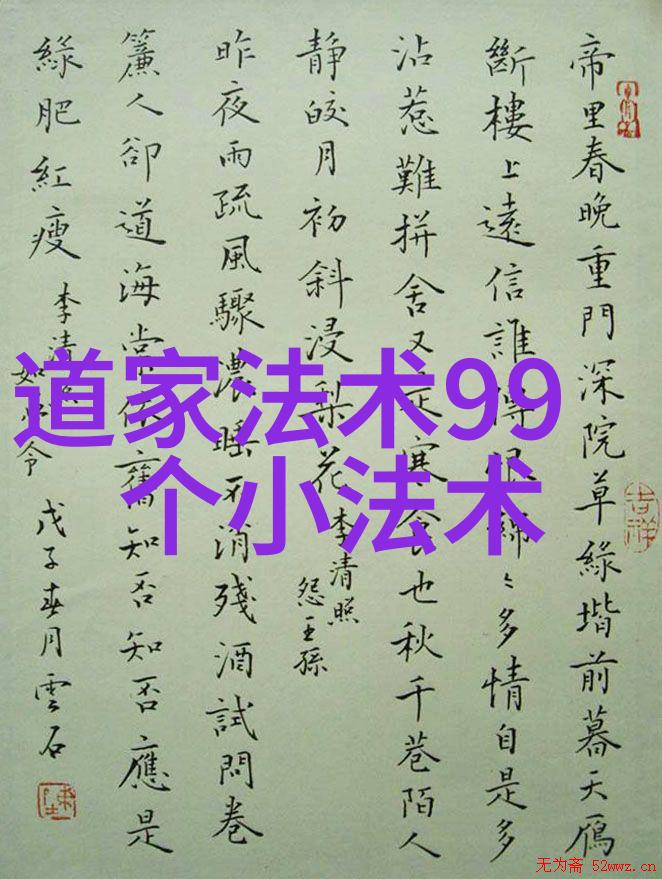 帝里春晚重門深院草綠堦前暮天鴈
斷樓上遠信誰傳恨綿〻多情自是多
沾惹難拼舍又是寒食也秋千巷陌人
靜皎月初斜浸梨花
李清照
怨王孫
昨夜雨疏風驟濃睡不消殘酒試問卷
簾人卻道海棠依舊知否知否應是
綠肥紅瘦
李清照
如夢令
戊子春月雲石
吉祥
道家法术99
个小法术
无为斋 52wwz.cn